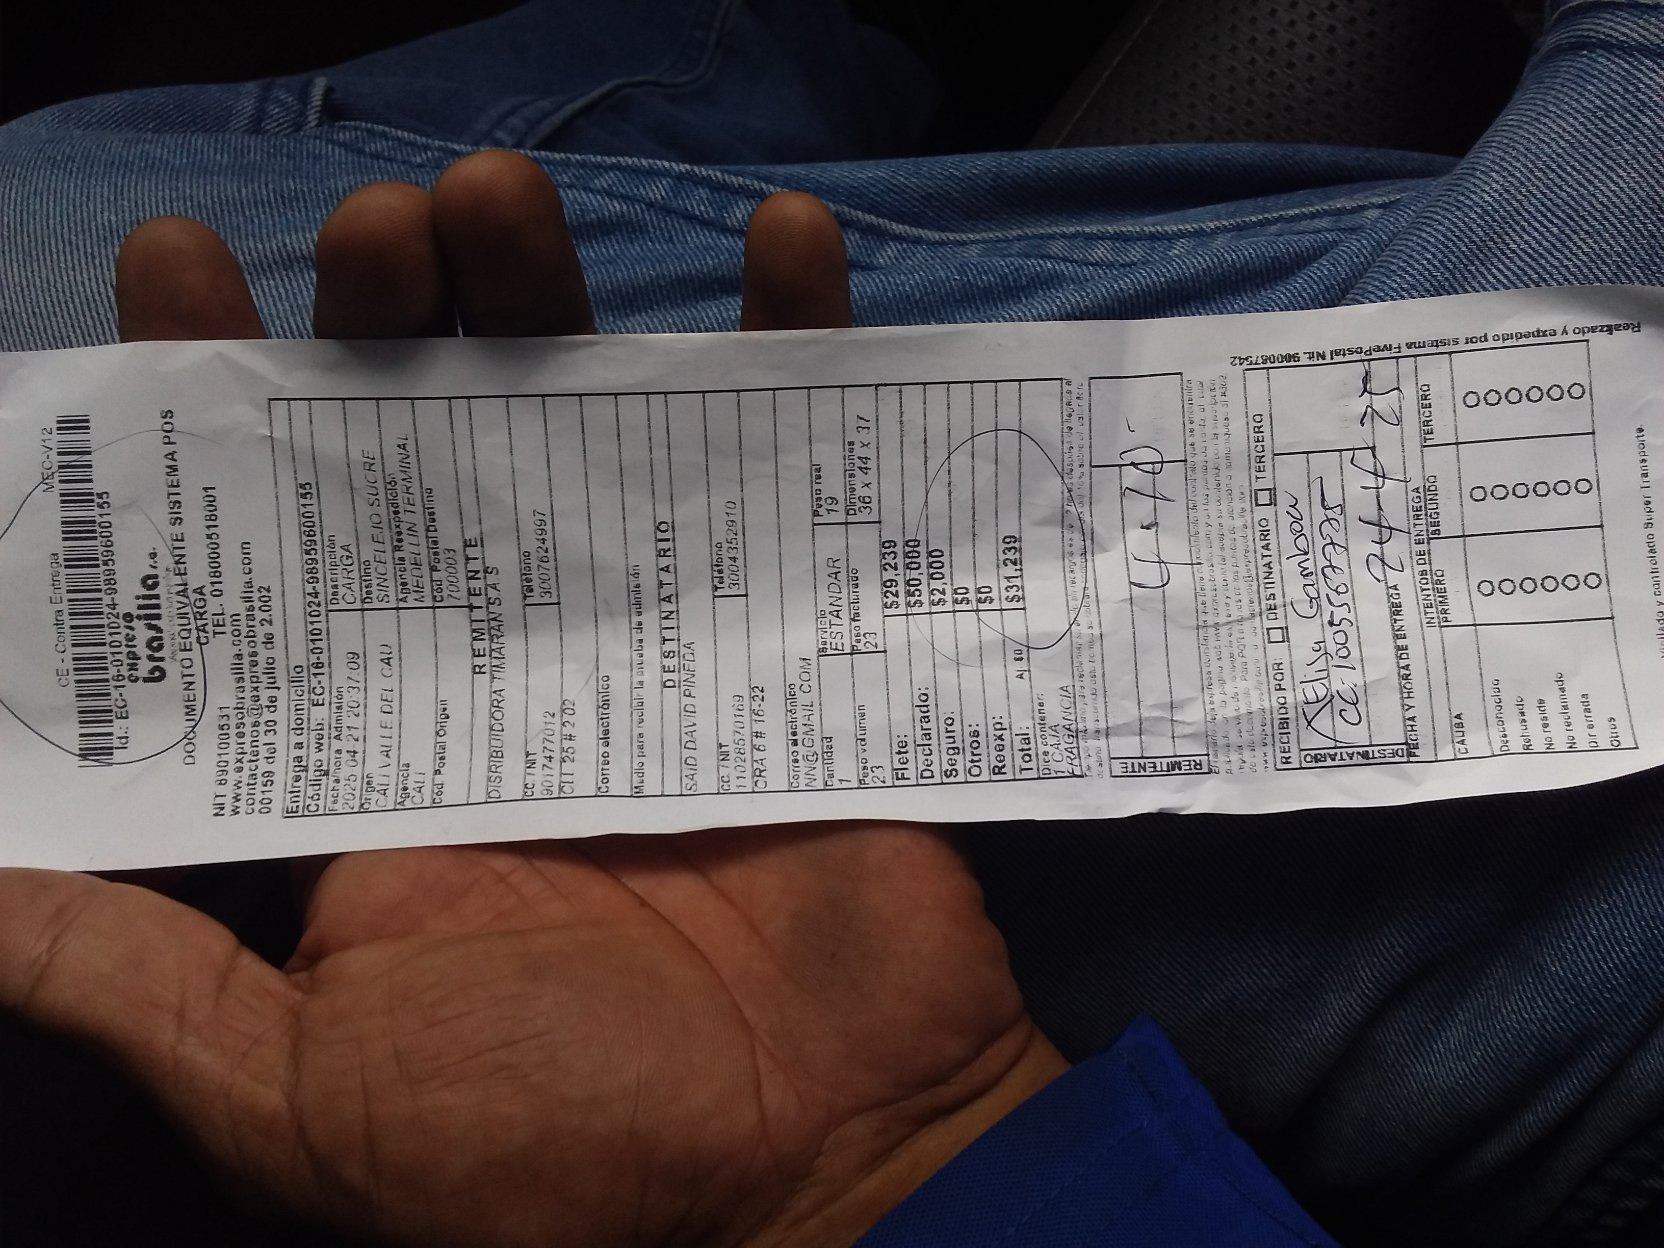 CE - Contra Entrega MEC-V12
Id.: EC-16-0101024-98959600155
expreso
brasilia s.a.
DOCUMENTO EQUIVALENTE SISTEMA POS
CARGA
NIT 890100531 TEL. 018000518001
www.expresobrasilia.com
contactenos@expresobrasilia.com
00159 del 30 de julio de 2.002
Entrega a domicilio
Código web: EC-16-0101024-98959600155
Fecha/hora Admisión Descripción
2025 04 21 20:37:09 CARGA
Origen Destino
CALI VALLE DEL CAU SINCELEJO SUCRE
Agencia Agencia Reexpedición
CALI MEDELLIN TERMINAL
Cód Postal Origen Cód Postal Destino
700003
REMITENTE
DISRIBUIDORA TIMARAN S A S
CC / NIT Teléfono
9017477012 3007624997
CLL 25 # 2 02
Correo electrónico
Medio para recibir la prueba de admisión
DESTINATARIO
SAID DAVID PINEDA
CC / NIT Teléfono
11028570169 3004352910
CRA 6 # 16-22
Correo electrónico
NN@GMAIL.COM
Cantidad Servicio Peso real
1 ESTANDAR 19
Peso volumen Peso facturado Dimensiones
23 23 36 x 44 x 37
Flete: $29,239
Declarado: $50,000
Seguro: $2,000
Otros: $0
Reexp: $0
Total: $31,239
Dice contener:
1 CAJA
FRAGANCIA
REMITENTE
4-10-
RECIBIDO POR: DESTINATARIO TERCERO
DESTINATARIO
Elisa Gamboa
CC: 1005582775
FECHA Y HORA DE ENTREGA 24-4-25
INTENTOS DE ENTREGA
CAUSA PRIMERO SEGUNDO TERCERO
Desconocido
Rehusado
No reside
No reclamado
Dir errada
Otros
Realizado y expedido por sistema FivePostal Nit. 900087542
Vigilado y controlado Super Transporte.